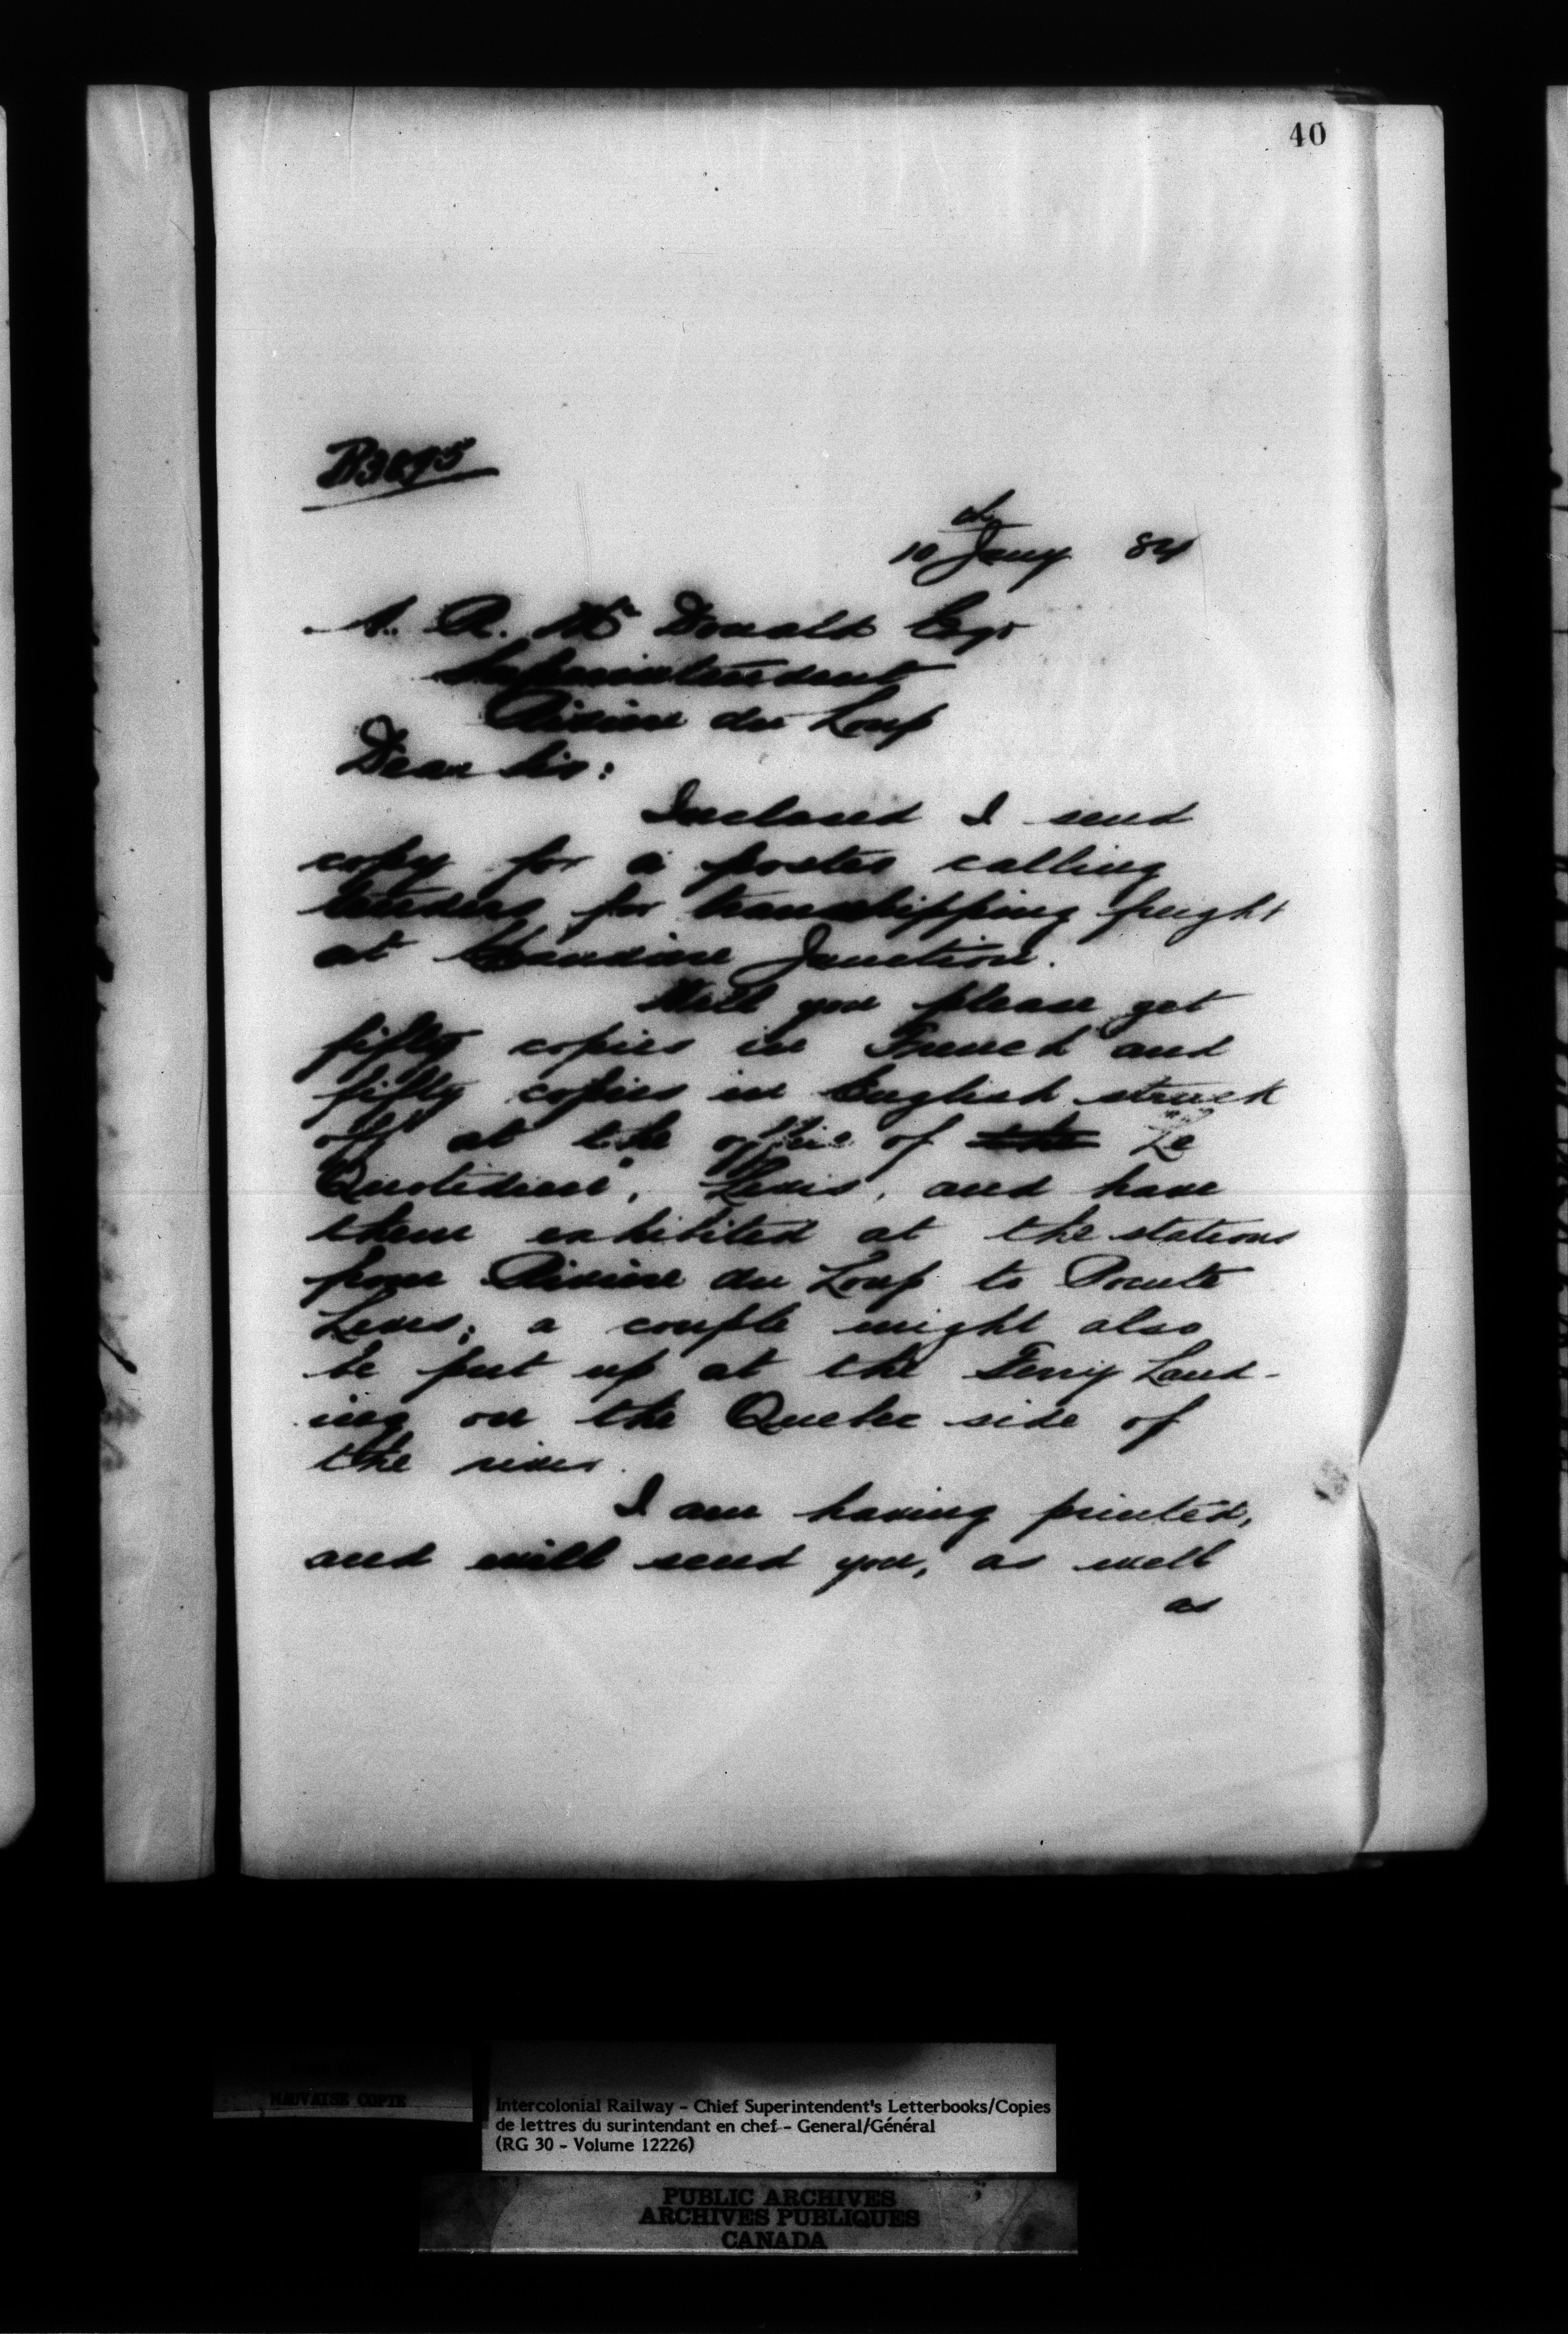 40
B3695
10th Jany 84
A. R. McDonald Esqr
Superintendent
Riviere du Loup
Dear Sir:
Inclosed I send
copy for a poster calling
tenders for transhipping freight
at Chaudiere Junction.
Will you please get
fifty copies in French and
fifty copies in English struck
off at the office of the "Le
Quotidien", Levis, and have
them exhibited at the stations
from Riviere du Loup to Pointe
Levis; a couple might also
be put up at the Ferry Land-
ing on the Quebec side of
the river.
I am having printed,
and will send you, as well
as
MAUVAISE COPIE
Intercolonial Railway - Chief Superintendent's Letterbooks/Copies
de lettres du surintendant en chef - General/Général
(RG 30 - Volume 12226)
PUBLIC ARCHIVES
ARCHIVES PUBLIQUES
CANADA